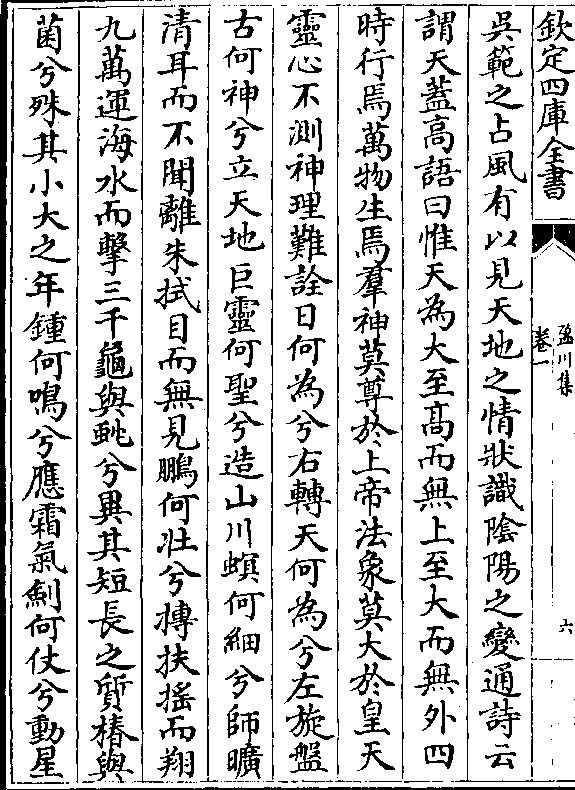 欽定四庫全書
盈川集
卷一
六
吳範之占風有以見天地之情狀識陰陽之變通詩云
謂天蓋高語曰惟天為大至高而無上至大而無外四
時行焉萬物生焉羣神莫尊於上帝法象莫大於皇天
靈心不測神理難詮日何為兮右轉天何為兮左旋盤
古何神兮立天地巨靈何聖兮造山川螟何細兮師曠
清耳而不聞離朱拭目而無見鵬何壯兮摶扶摇而翔
九萬運海水而擊三千龜與虵兮異其短長之質椿與
菌兮殊其小大之年鍾何鳴兮應霜氣劒何伏兮動星